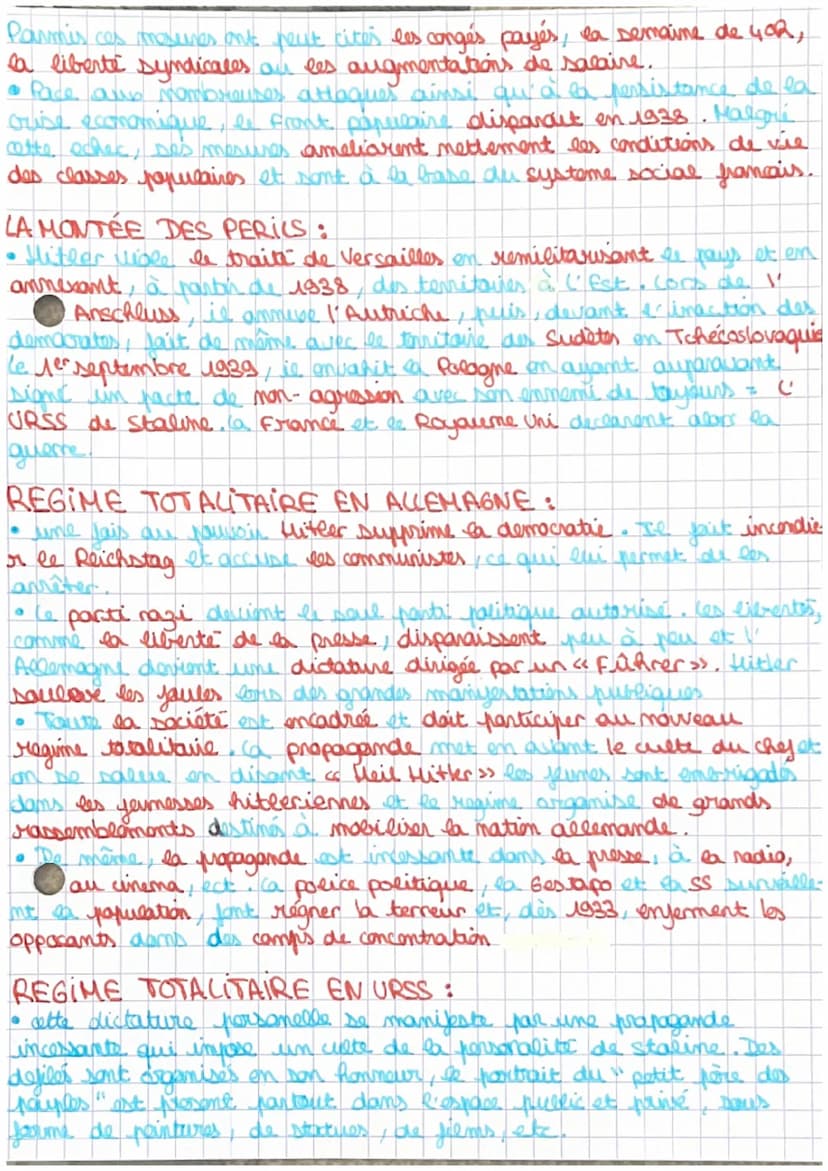 Parmis ces mesures ont peut cités les congés payés, la semaine de 40h,
la liberté syndicales ou les augmentations de salaire.
• Face aux nombreuses attaques ainsi qu'à la persistance de la
crise économique, le Front populaire disparait en 1938. Malgré
cette echec, ses mesures ameliorent nettement les conditions de vie
des classes populaires et sont à la base du systeme social francais.
LA MONTÉE DES PERILS :
• Hitler viole le traité de Versailles en remilitarisant le pays et en
annexant, à partir de 1938, des territoires à l'Est. Lors de l'
Anschluss, il annexe l'Autriche, puis, devant l'inaction des
democraties, fait de même avec le territoire des Sudètes en Tchécoslovaquie
Le 1er septembre 1939, il envahit la Pologne en ayant auparavant
signé un pacte de non-agression avec son ennemi de toujours = l'
URSS de Staline. La France et le Royaume Uni declarent alors la
guerre.
REGIME TOTALITAIRE EN ALLEMAGNE :
• une fois au pouvoir Hitler supprime la democratie. Il fait incendie
r le Reichstag et accuse les communistes, ce qui lui permet de les
arrêter.
• Le parti nazi devient le seul parti politique autorisé. Les libertés,
comme la liberté de la presse, disparaissent peu à peu et l'
Allemagne devient une dictature dirigée par un « Fûhrer ». Hitler
souleve les foules lors des grandes manifestations publiques
• Toute la société est encadrée et doit participer au nouveau
regime totalitaire. La propagande met en avant le culte du chef et
on se salue en disant « Heil Hitler » les jeunes sont embrigadés
dans les jeunesses hitleriennes et le regime organise de grands
rassemblements destinés à mobiliser la nation allemande.
• De même, la propagande est incessante dans la presse, à la radio,
au cinema, ect. La police politique, la Gestapo et la SS surveille-
nt la population, font régner la terreur et, dès 1933, enferment les
opposants dans des camps de concentration
REGIME TOTALITAIRE EN URSS :
• cette dictature personelle se manifeste par une propagande
incessante qui impose un culte de la personalité de staline. Des
defilés sont organisés en son honneur, le portrait du "petit père des
peuples" est present partout dans l'espace public et privé, sous
forme de peintures, de statues, de films, etc.